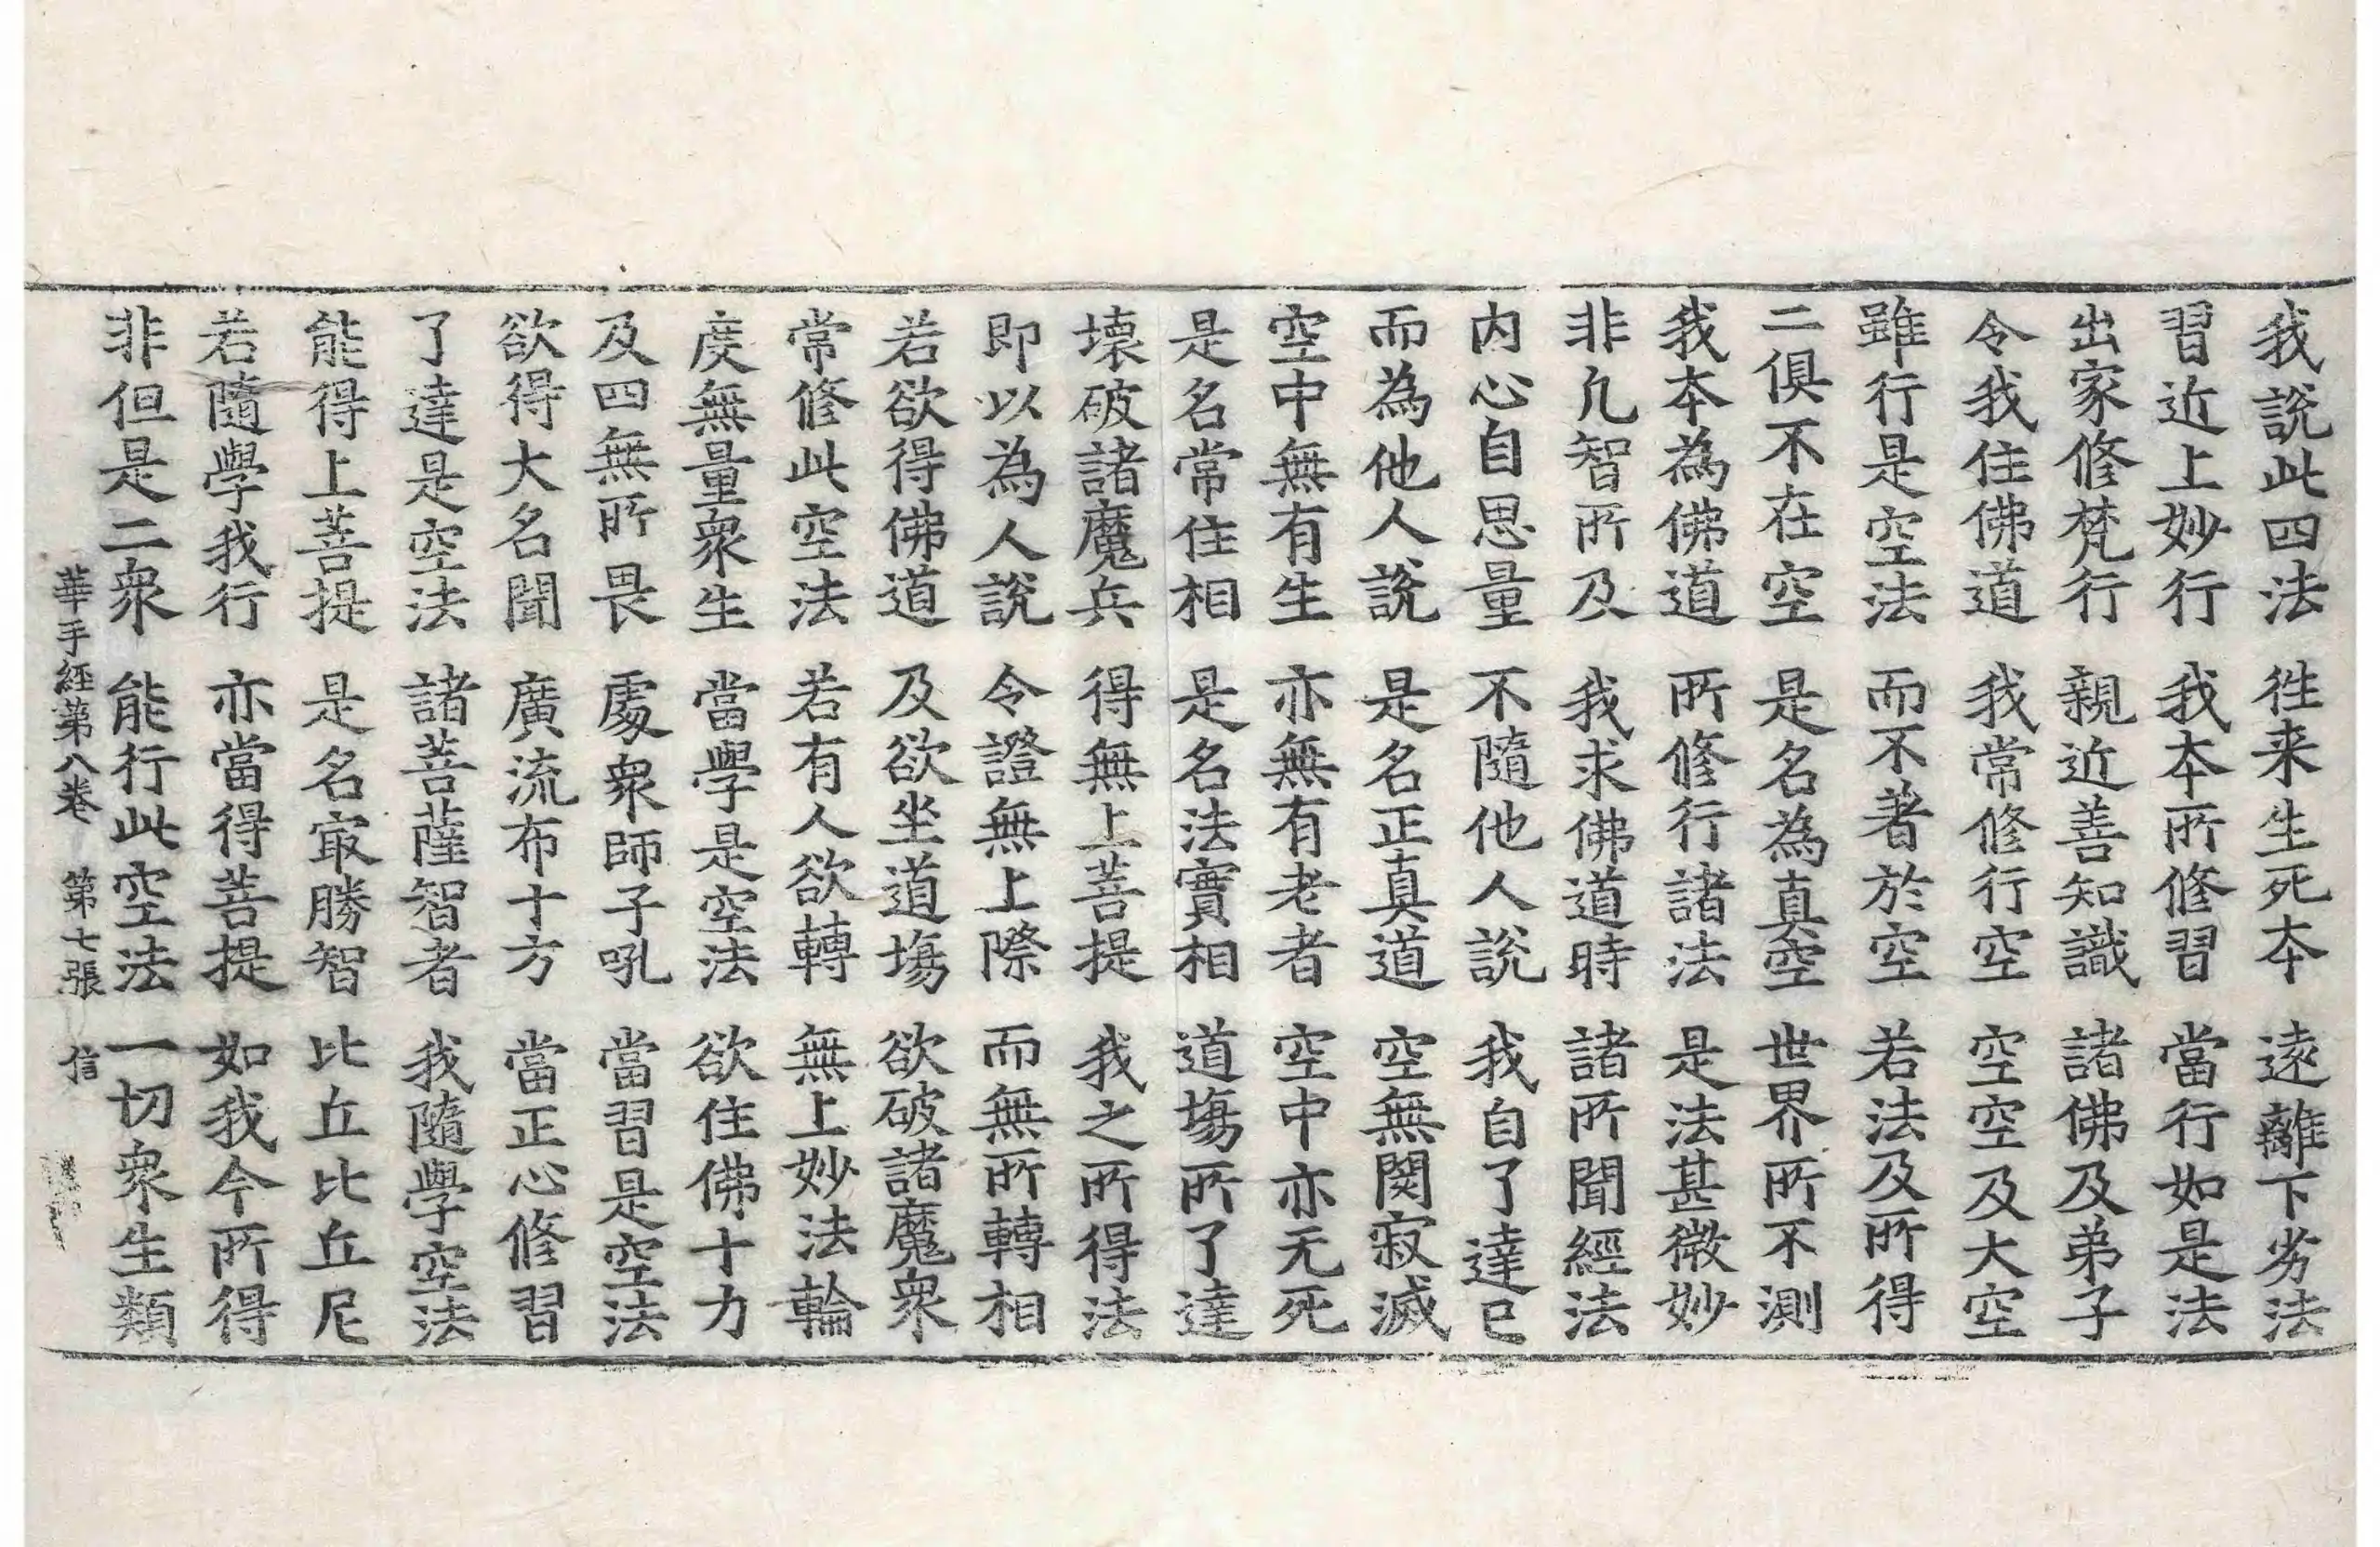 我說此四法 徃来生死本 遠離下劣法
習近上妙行 我本所修習 當行如是法
出家修梵行 親近善知識 諸佛及弟子
令我住佛道 我常修行空 空空及大空
雖行是空法 而不著於空 若法及所得
二俱不在空 是名為真空 世界所不測
我本為佛道 所修行諸法 是法甚微妙
非凡智所及 我求佛道時 諸所聞經法
内心自思量 不隨他人說 我自了達已
而為他人說 是名正真道 空無関寂滅
空中無有生 亦無有老者 空中亦无死
是名常住相 是名法實相 道塲所了達
壊破諸魔兵 得無上菩提 我之所得法
即以為人說 令證無上際 而無所轉相
若欲得佛道 及欲坐道塲 欲破諸魔衆
常修此空法 若有人欲轉 無上妙法輪
度無量衆生 當學是空法 欲住佛十力
及四無所畏 處衆師子吼 當習是空法
欲得大名聞 廣流布十方 當正心修習
了達是空法 諸菩薩智者 我隨學空法
能得上菩提 是名㝡勝智 比丘比丘尼
若隨學我行 亦當得菩提 如我今所得
非但是二衆 能行此空法 一切衆生類
華手経第八卷 第七張 信